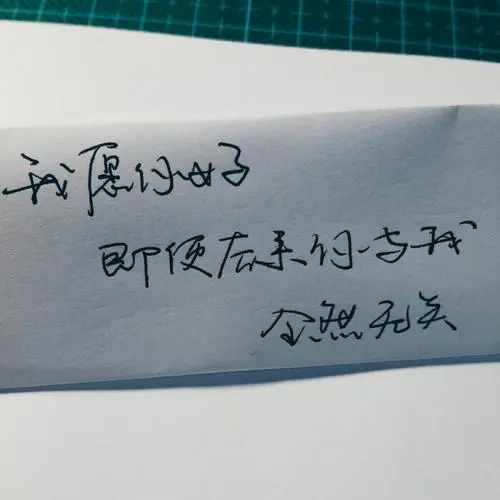 我愿你好
即便未来你与我
全然无关